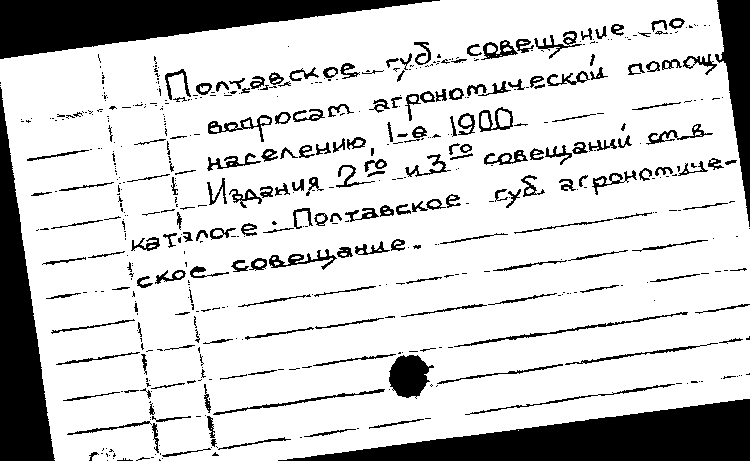 Полтавское губ. совещание по
вопросам агрономической помощи
населению, 1-е. 1900
Издания 2го и 3го совещаний см. в
каталоге: Полтавское губ. агрономиче-
ское совещание.